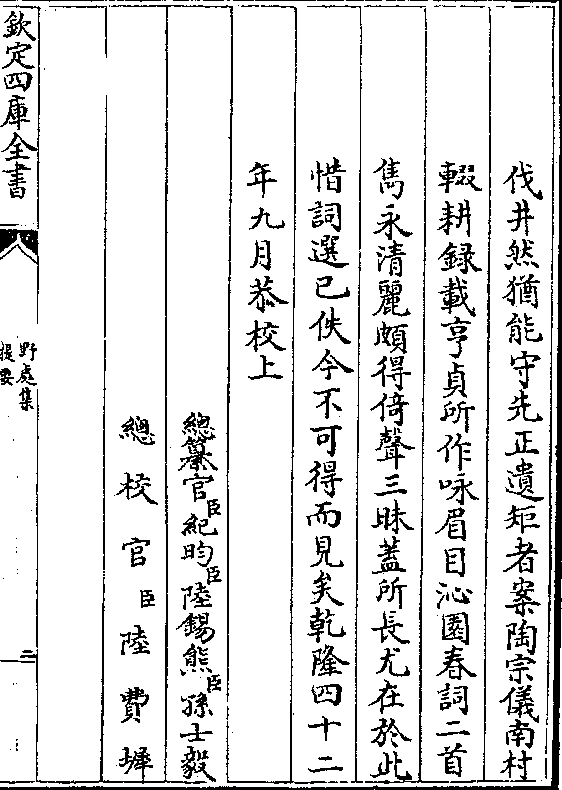 伐井然猶能守先正遺矩者案陶宗儀南村
輟耕録載亨貞所作咏眉目沁園春詞二首
雋永清麗頗得倚聲三昧蓋所長尤在於此
惜詞選已佚今不可得而見矣乾隆四十二
年九月恭校上
總纂官臣紀昀臣陸錫熊臣孫士毅
總校官臣陸費墀
欽定四庫全書
野處集
提要
二